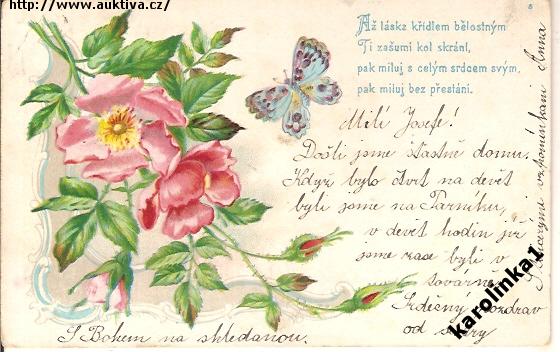 http://www.auktiva.cz/
8
Až láska křídlem bělostným
Ti zašumí kol skrání,
pak miluj s celým srdcem svým,
pak miluj bez přestání.
Milý Josefe!
Došli jsme šťastně domu.
Když bylo čtvrt na devět
byli jsme na Parníku,
v devět hodin již
jsme zase byli v
továrně.
Srdečný pozdrav
od
S Bohem na shledanou.
vzpomínkami Anna
karolinka1